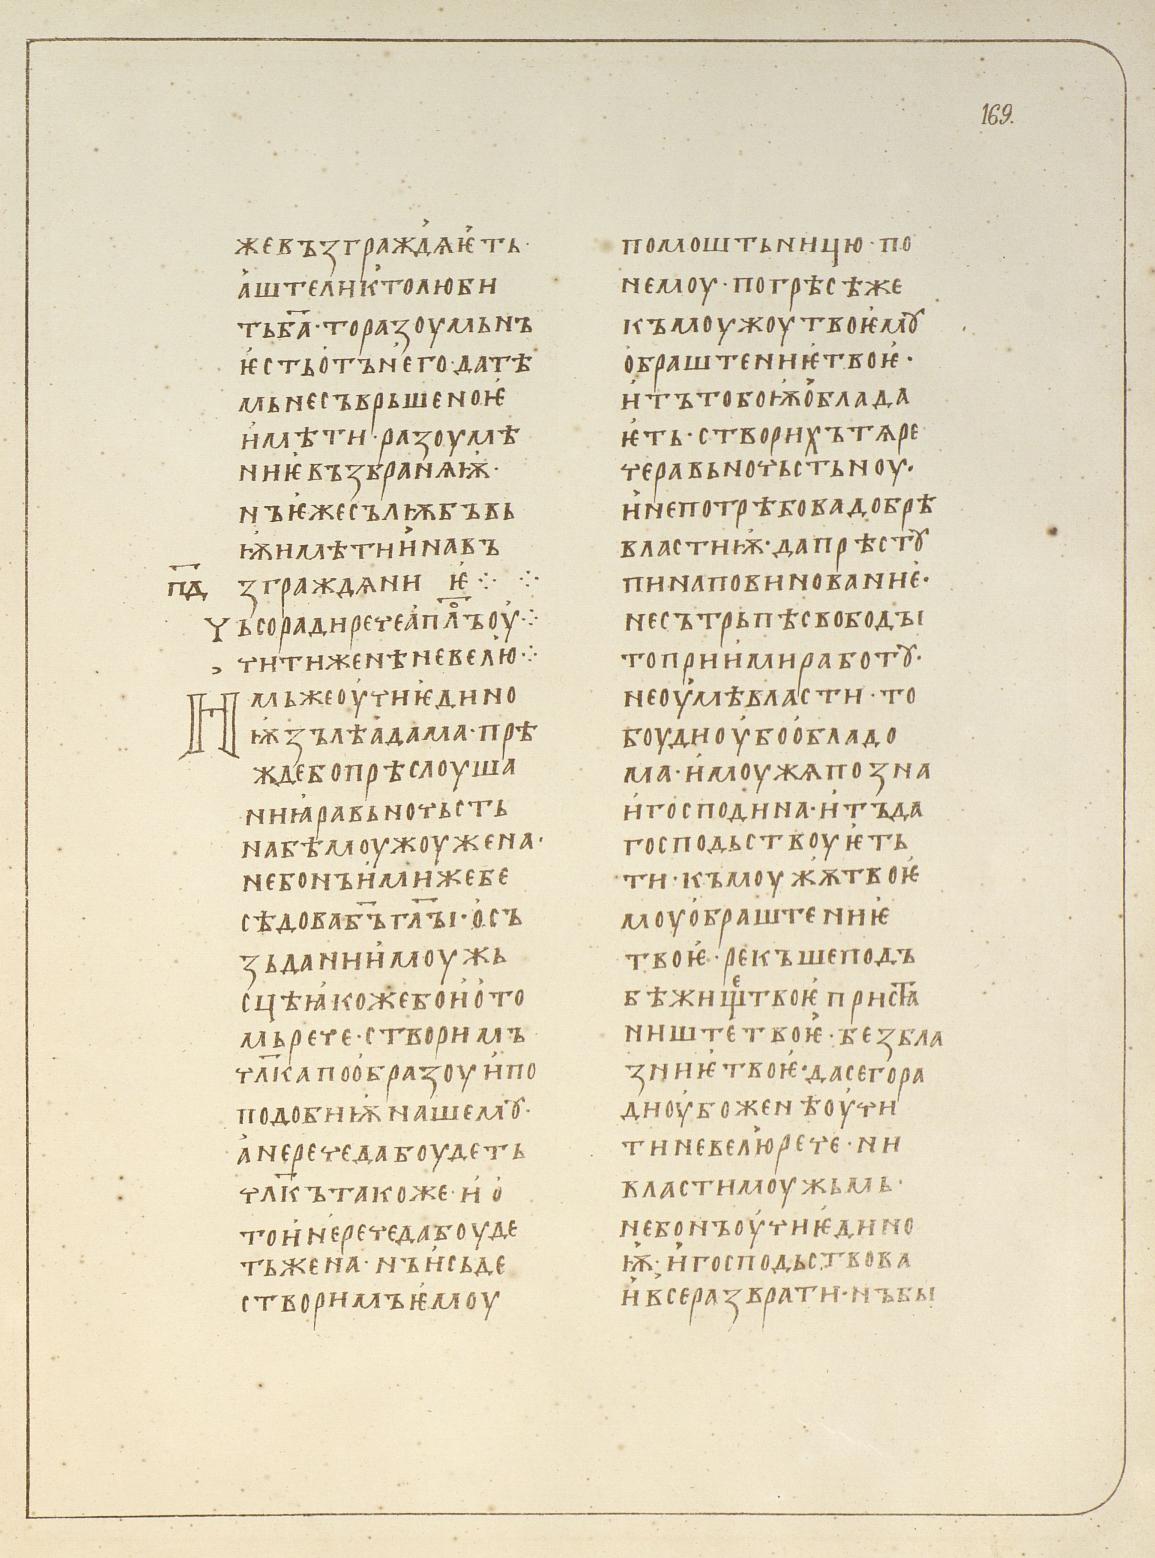 169.
жевъзграждѧѥть·
аштеликтолюби
тьба҃·торазоумьнъ
ѥстьотънего·датѣ
мьнесъврьшеноѥ
имѣти·разоумѣ
ниѥвъзбранѧѭ·
нъѥжесълѭбъвь
ѭимѣтиинавъ
п҃д зграждѧни ѥ⁘ ⁘
Чьсорадиречеапл҃ъоу⁘
, чтитиженѣневелю⁘
Имьжеоучиѥдино
ѭзълѣадама·прѣ
ждебопрѣслоуша
ниꙗравьночьсть
набѣмоужоужена·
небонъимижебе
сѣдовабъ҃гл҃ъі·осъ
зьданиимоужь
сцѣꙗкожебоиото
мьрече·створимъ
чл҃капообразоуипо
подобиѭнашемꙋ·
анеречедабоудеть
чл҃кътакоже·ио
тоинеречедабоуде
тьжена·нъисьде
створимъѥмоу
помоштьницю·по
немоу·погрѣсѣже
къмоужоутвоѥмꙋ
обраштениѥтвоѥ·
итътобоѭоблада
ѥть·створихътѧре
черавьночьстьноу·
инепотрѣбовадобрѣ
властиѭ·дапрѣстꙋ
пинаповинованиѥ·
несътрьпѣсвободъі
топриимиработꙋ·
неоумѣвласти·то
боудиоубообладо
ма·имоужѧпозна
игосподина·итъда
господьствоуѥть
ти·къмоужѫтвоѥ
моуобраштениѥ
твоѥ·рекъшеподъ
бѣжищетвоѥпристꙗ
ништетвоѥ·безбла
зниѥтвоѥ·дасегора
диоубоженѣоучи
тиневелюрече·ни
властимоужьмь·
небонъоучиѥдино
ѭ·игосподьствова
ивсеразврати·нъбы